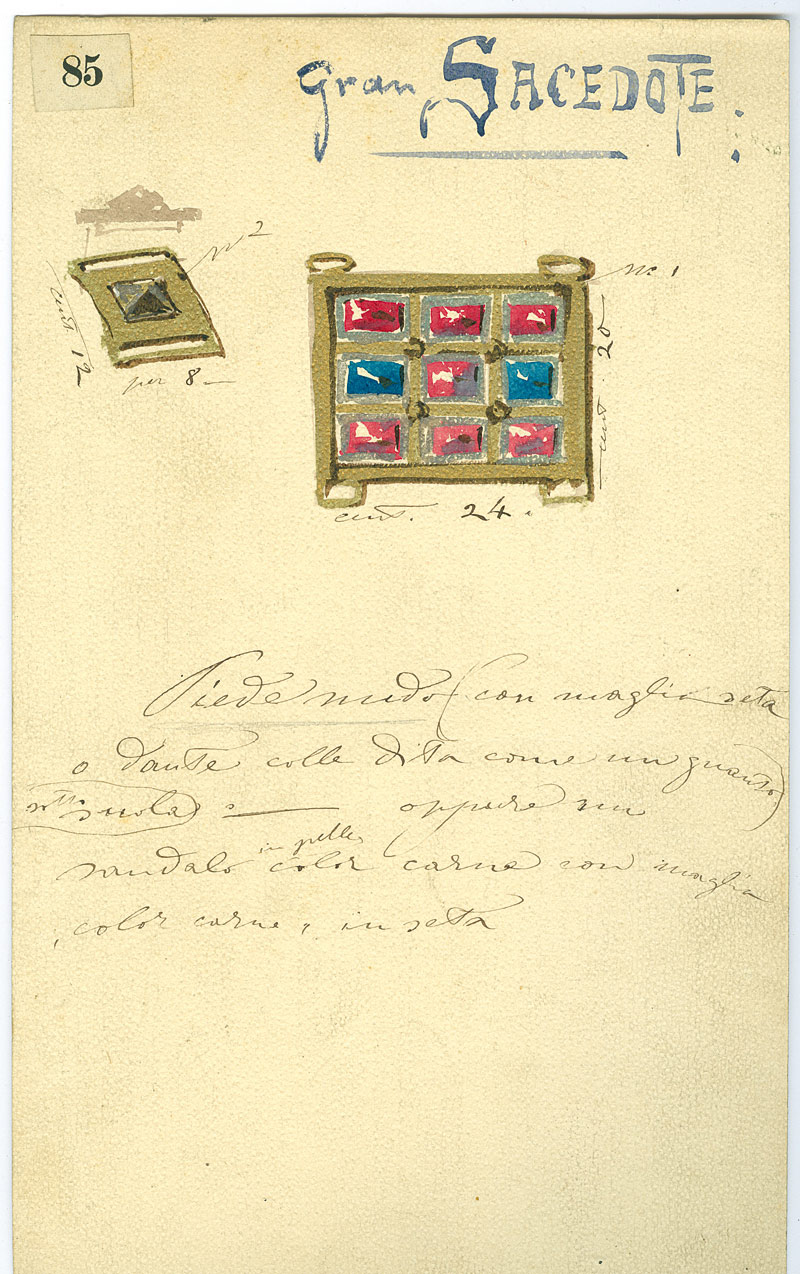 85
Gran SACEDOTE :
n° 2
n° 1
cent. 12
per 8 —
cent. 20
cent. 24.
Piede nudo (con maglia seta
o dante colle dita come un guanto)
sott suola) : — oppure un
in pelle
sandalo color carne con maglia
color carne, in seta